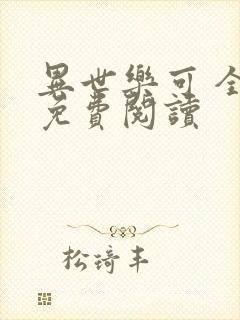 異世樂可 全
免費閱讀
松琦丰